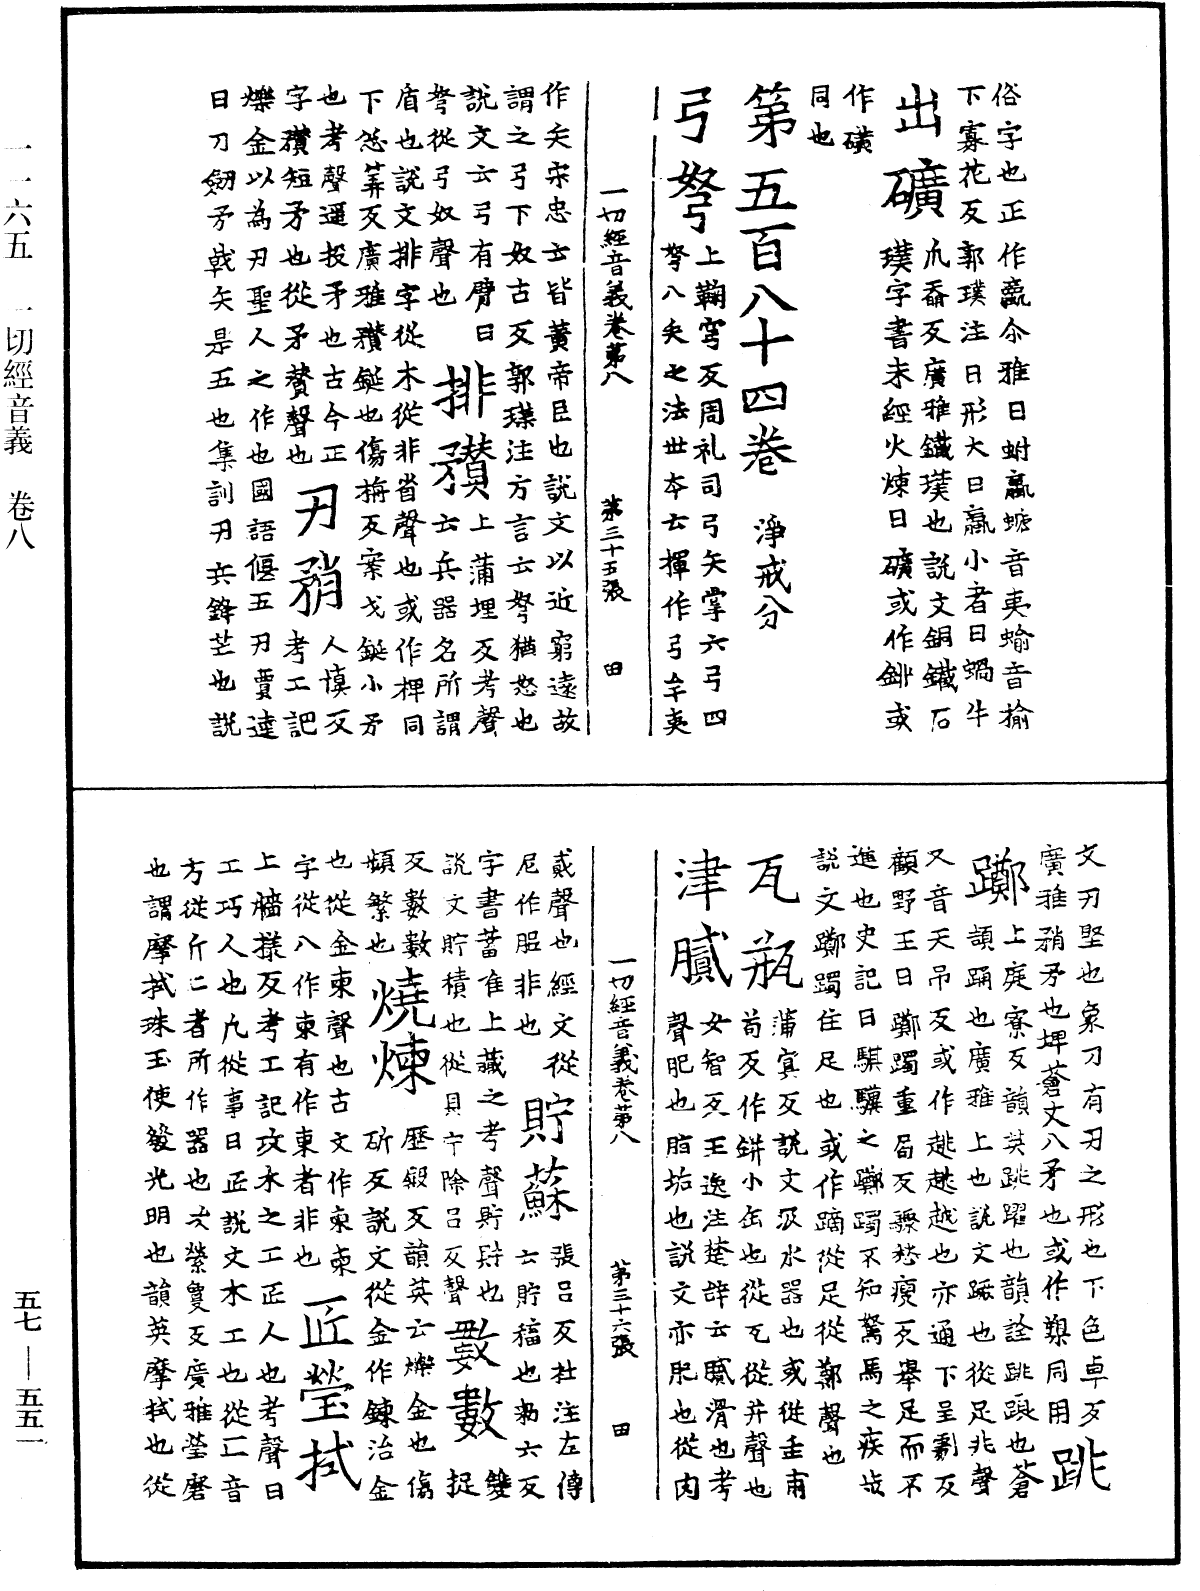 一一六五　一切經音義　卷八
俗字也正作蠃尒雅曰蚹蠃螔音夷蝓音揄
下寡花反郭璞注曰形大曰蠃小者曰蝸牛
出礦
瓜猛反廣雅鐵璞也說文銅鐵石
璞字書未經火煉曰礦或作鉚或
作磺
同也
第五百八十四卷　淨戒分
弓弩
上鞠穹反周礼司弓矢掌六弓四
弩八矢之法世本云揮作弓牟夷
一切經音義卷第八　第三十五張　田
作矢宋忠云皆黃帝臣也說文以近窮遠故
謂之弓下奴古反郭璞注方言云弩猶怒也
說文云弓有臂曰
弩從弓奴聲也
排䂎
上蒲埋反考聲
云兵器名所謂
盾也說文排字從木從非省聲也或作椑同
下忩筭反廣雅䂎鋋也傷栴反案戈鋋小矛
也考聲遥投矛也古今正
字䂎短矛也從矛贊聲也
刃矟
人慎反
考工記
爍金以為刃聖人之作也國語偃五刃賈逵
曰刀劒矛戟矢是五也集訓刃兵鋒芒也說
文刃堅也象刀有刃之形也下色卓反
廣雅矟矛也埤蒼丈八矛也或作槊同用
跳
躑
上庭寮反韻英跳躍也韻詮跳踉也蒼
頡踊也廣雅上也說文蹶也從足兆聲
又音天吊反或作趒越也亦通下呈劇反
顧野王曰躑躅重局反驟愁瘦反舉足而不
進也史記曰騏驥之躑躅不知駑馬之疾步
說文躑躅住足也或作蹢從足從鄭聲也
瓦瓶
蒲冥反說文汲水器也或從缶甫
茍反作缾小缶也從瓦從并聲也
津膩
女智反王逸注楚辞云膩滑也考
聲肥也脂垢也說文亦肥也從肉
一切經音義卷第八　第三十六張　田
貳聲也經文從
尼作䏧非也
貯蘇
張呂反杜注左傳
云貯稸也勑六反
字書蓄唯上藏之考聲貯貯也
說文貯積也從貝宁除呂反聲
數數
雙
捉
反數數
頻繁也
燒煉
歷緞反韻英云爍金也傷
斫反說文從金作鍊治金
也從金柬聲也古文作柬柬
字從八作柬有作東者非也
匠瑩拭
上牆樣反考工記攻木之工匠人也考聲曰
工巧人也凡從事曰匠說文木工也從匚音
方從斤匚者所作器也次縈敻反廣雅瑩磨
也謂摩拭珠玉使發光明也韻英摩拭也從
五七—五五一